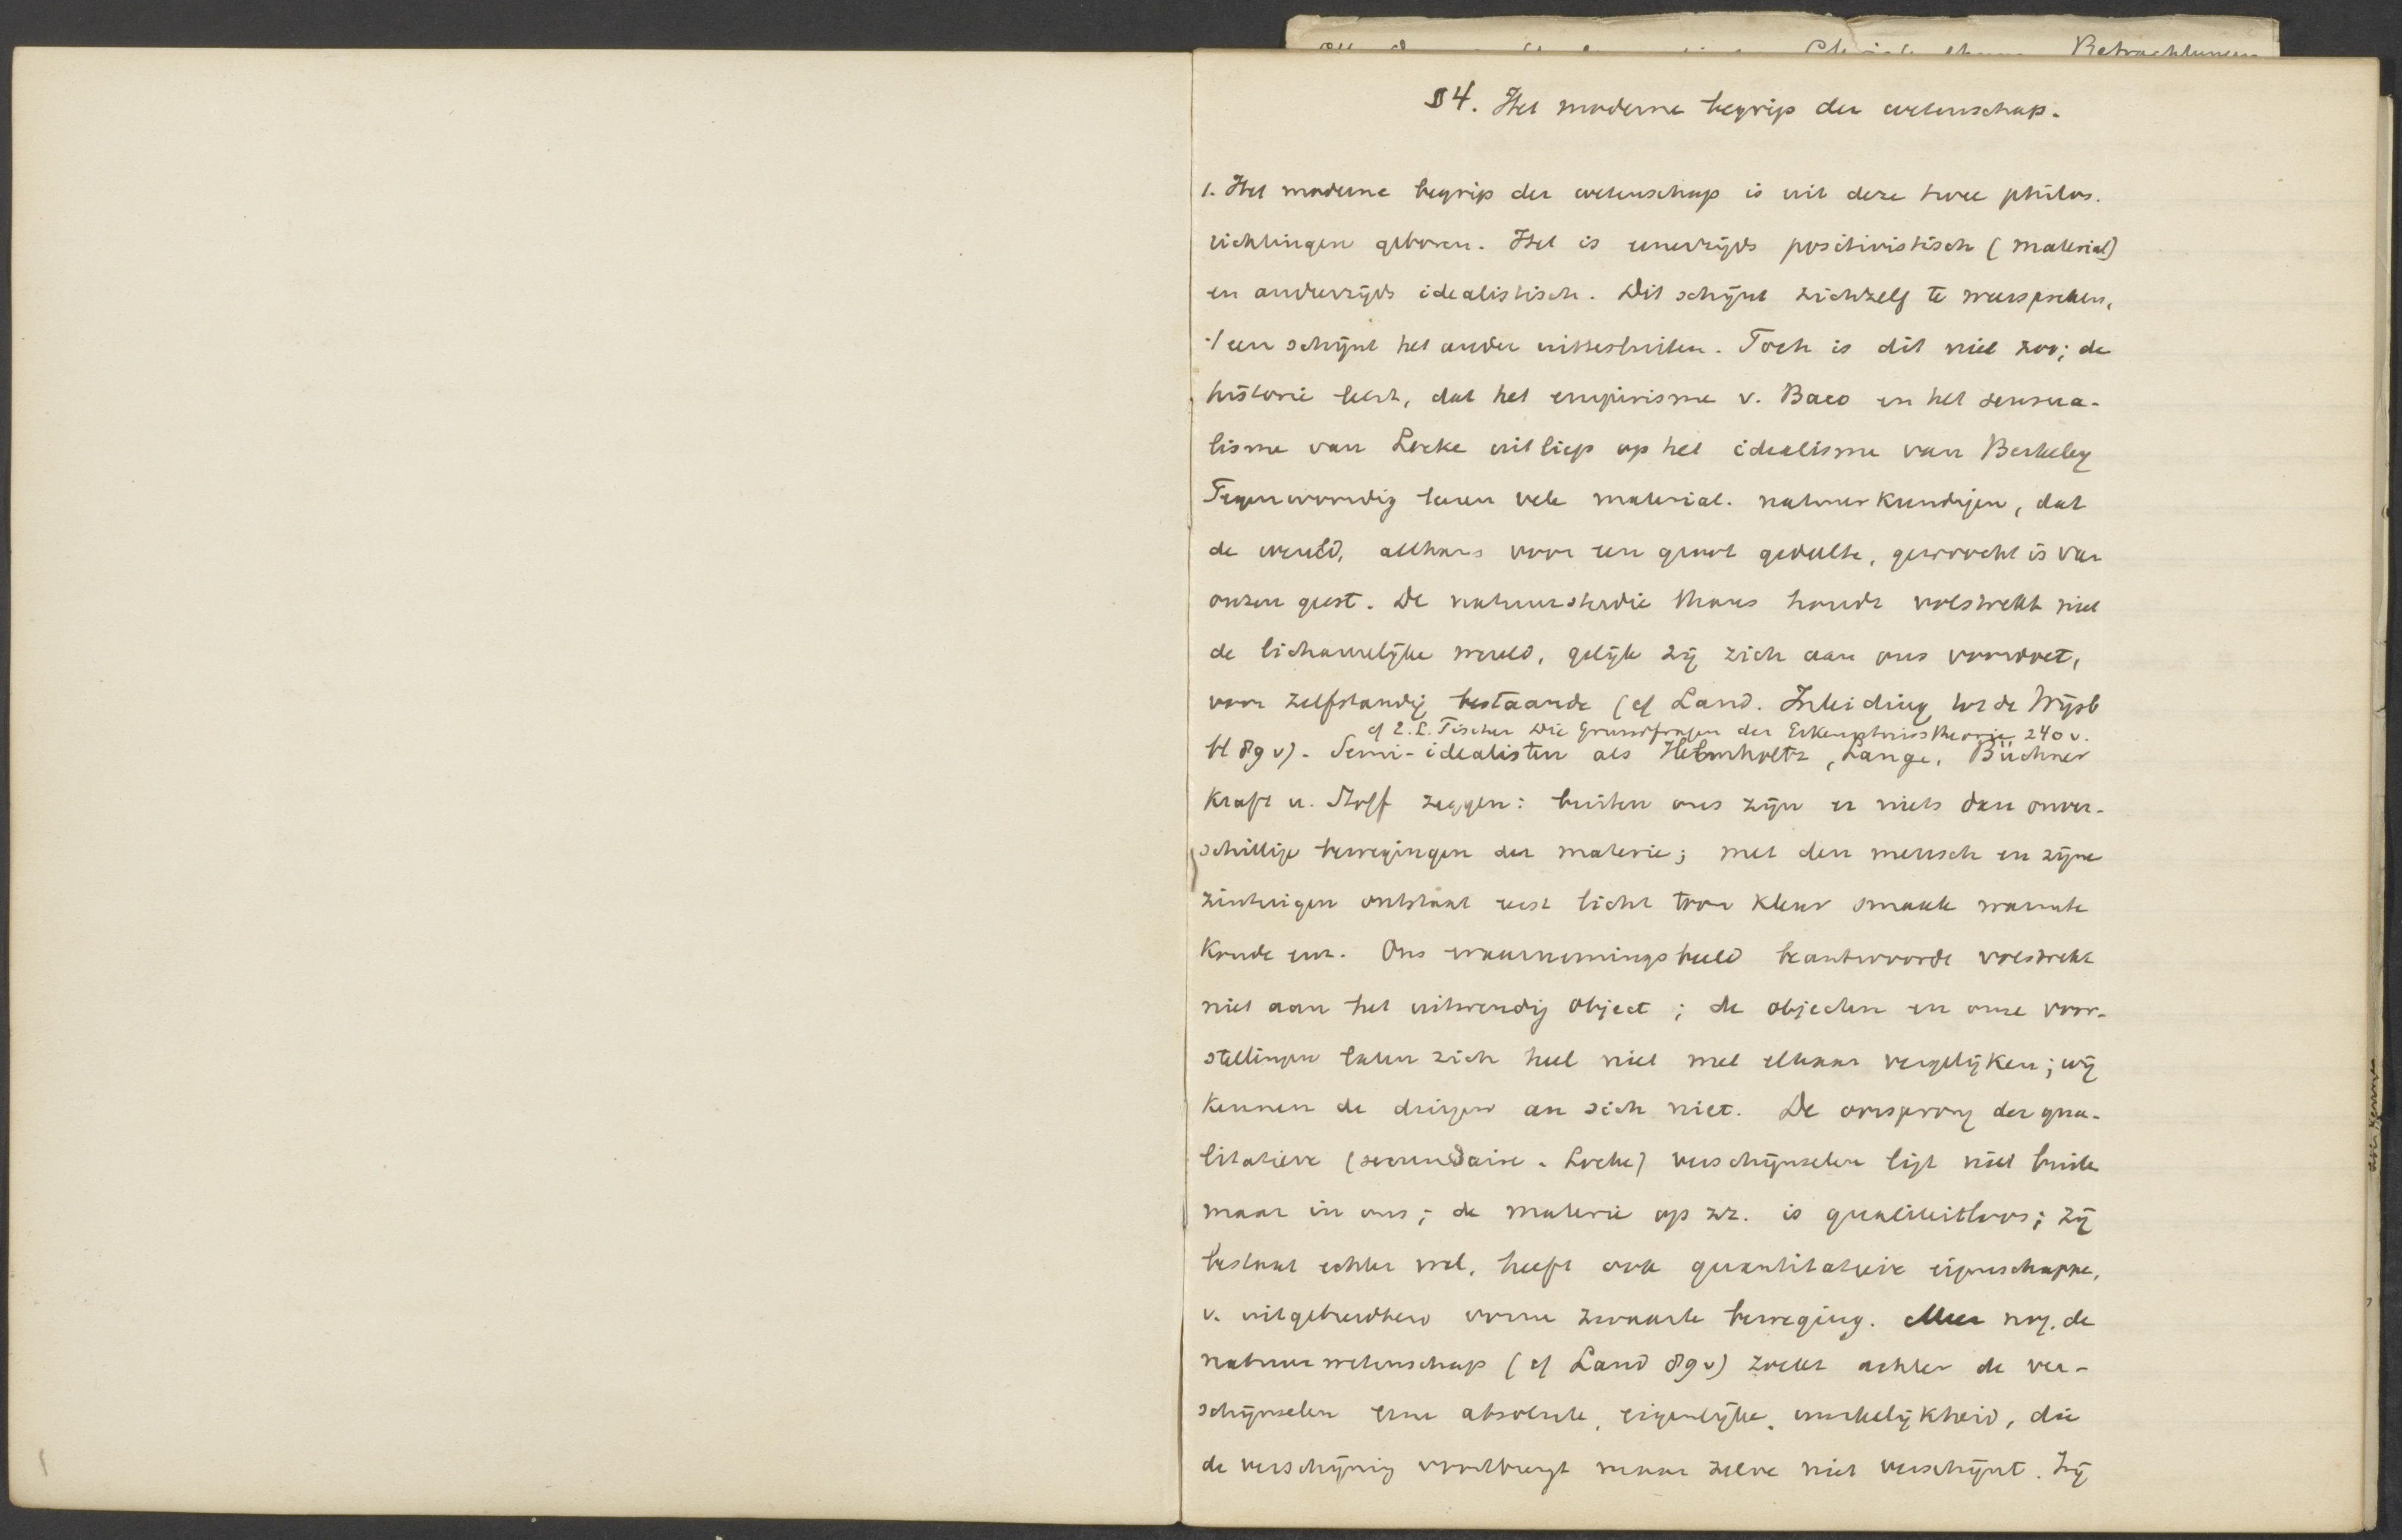 Betrachtungen
§ 4. Het moderne begrip der wetenschap.
1. Het moderne begrip der wetenschap is uit deze twee philos.
richtingen geboren. Het is eenerzijds positivistisch (material)
en anderzijds idealistisch. Dit schijnt zichzelf te weerspreken,
't een schijnt het ander uittesluiten. Toch is dit niet zoo; de
historie leert, dat het empirisme v. Baco en het sensua-
lisme van Locke uitliep op het idealisme van Berkeley
Tegenwoordig leeren vele material. natuurkundigen, dat
de wereld, althans voor een groot gedeelte, gewrocht is van
onzen geest. De natuurstudie thans houdt volstrekt niet
de lichamelijke wereld, gelijk zij zich aan ons voordoet,
voor zelfstandig bestaande (cf Land. Inleiding tot de Wijsb
cf E. L. Fischer Die Grundfragen der Erkenntnisstheorie 240 v.
bl 89 v). Semi-idealisten als Helmholtz, Lange, Büchner
Kraft u. Stoff zeggen: buiten ons zijn er niets dan onver-
schillige bewegingen der materie; met den mensch en zijne
zintuigen ontstaat eerst licht toon kleur smaak warmte
koude enz. Ons waarnemingsbeeld beantwoordt volstrekt
niet aan het uitwendig object; de objecten en onze voor-
stellingen laten zich heel niet met elkaar vergelijken; wij
kennen de dingen an sich niet. De oorsprong der qua-
litatieve (secundaire - Locke) verschijnselen ligt niet buiten
maar in ons; de materie op zz. is qualiteitloos; zij
bestaat echter wel, heeft ook quantitatieve eigenschappen,
v. uitgebreidheid vorm zwaarte beweging. Meer nog, de
natuurwetenschap (cf Land 89 v) zoekt achter de ver-
schijnselen eene absolute, eigenlijke, werkelijkheid, die
de verschijning voortbrengt maar zelve niet verschijnt. Zij